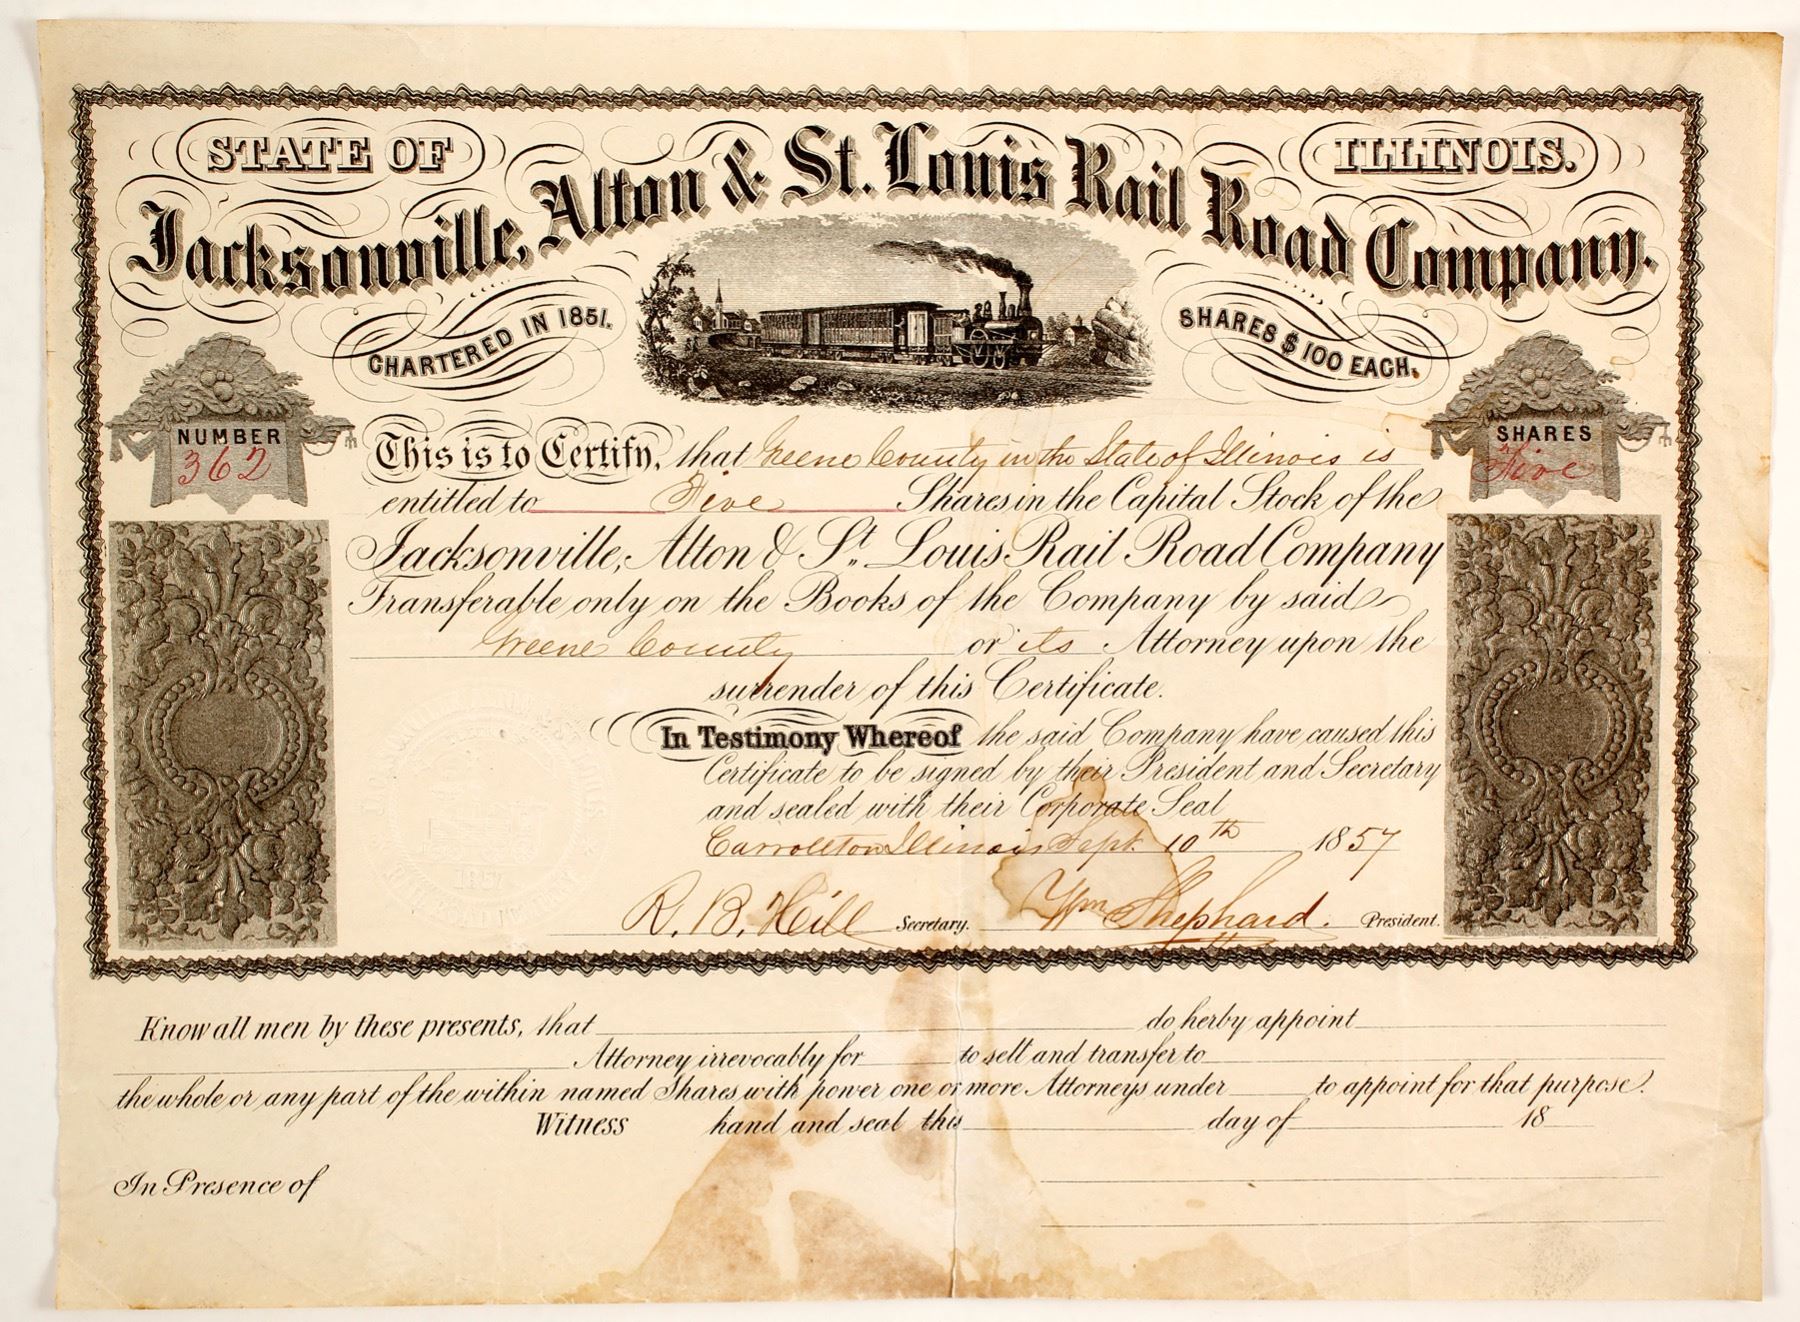 STATE OF ILLINOIS.
Jacksonville, Alton & St. Louis Rail Road Company.
CHARTERED IN 1851.
SHARES $100 EACH.
NUMBER
362
SHARES
Five
This is to Certify, that Greene County in the State of Illinois is
entitled to Five Shares in the Capital Stock of the
Jacksonville, Alton & St. Louis Rail Road Company
Transferable only on the Books of the Company by said
Greene County or its Attorney upon the
surrender of this Certificate.
In Testimony Whereof the said Company have caused this
Certificate to be signed by their President and Secretary
and sealed with their Corporate Seal
Carrollton Illinois Sept. 10th 1857
R. B. Hill Secretary. Wm Shephard. President.
Know all men by these presents, that do herby appoint
Attorney irrevocably for to sell and transfer to
the whole or any part of the within named Shares with power one or more Attorneys under to appoint for that purpose.
Witness hand and seal this day of 18
In Presence of